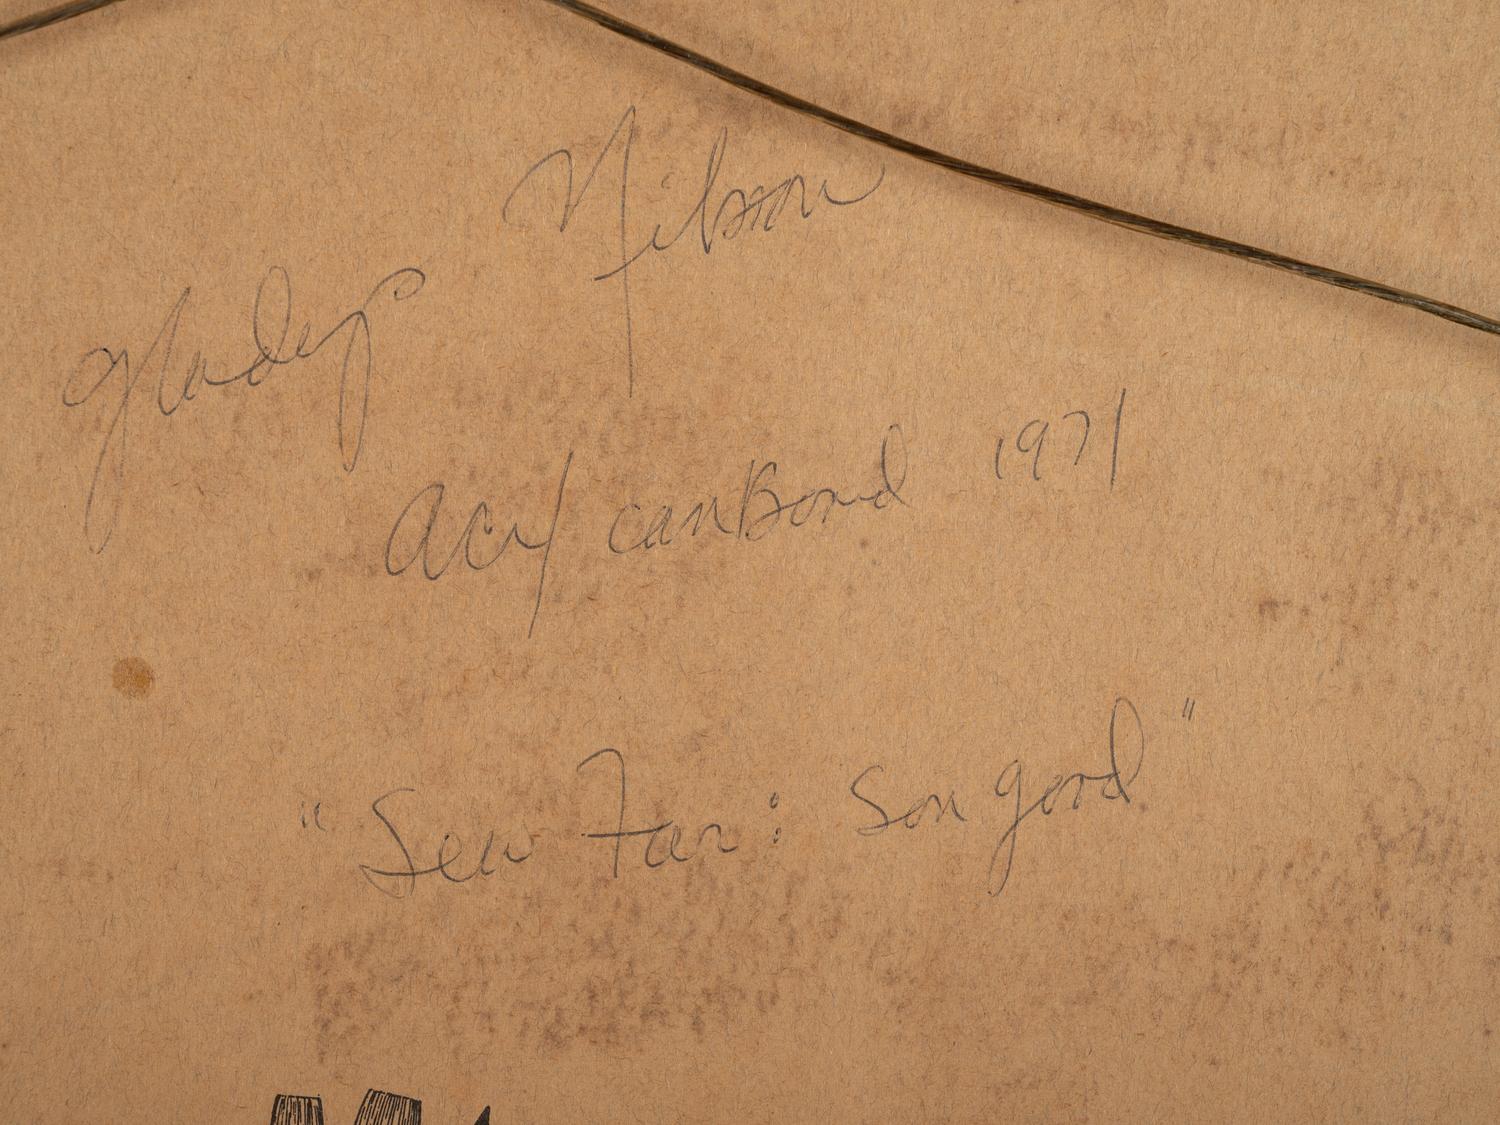 Gladys Nilson
Acry/ canBord 1971
"Sew Far: Son good"